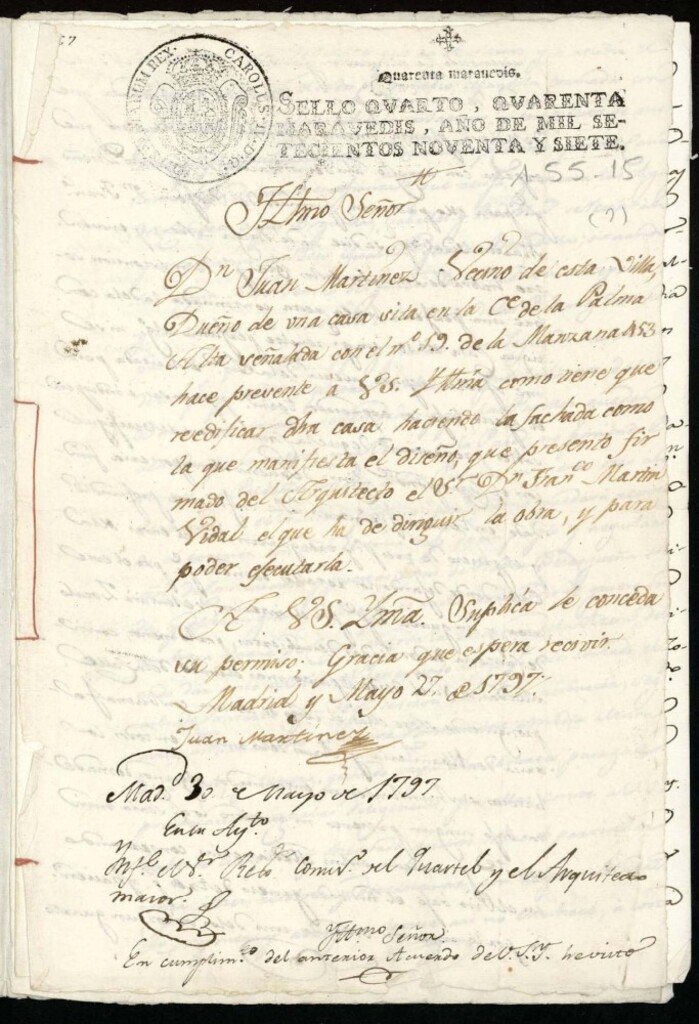 57
CAROLUS. IV. D. G. HISPANIARUM REX.
Quarenta marauedis.
SELLO QVARTO, QVARENTA
MARAVEDIS, AÑO DE MIL SE-
TECIENTOS NOVENTA Y SIETE.
1-55-15
(?)
Yltmo Señor
Dn Juan Martinez Vecino de esta Villa,
Dueño de una casa sita en la Ce. de la Palma
Alta señalada con el nº 19. de la Manzana 453
hace presente a V.S. Yltma como tiene que
reedificar dha casa haciendo la fachada como
la que manifiesta el diseño, que presento fir
mado del Arquitecto el Sr. Dn Franco Martin
Vidal el que ha de dirigir la obra, y para
poder ejecutarla.
A V.S. Yma. Suplica le conceda
su permiso; Gracia que espera recivir.
Madrid y Mayo 27. de 1797.
Juan Martinez
Madd. 30 de Mayo de 1797
En su Ayto.
Ynfe el Sr. Rexor Comiso. del Quartel y el Arquitecto
maior.
Yltmo. Señor.
En cumplimto. del anterior Acuerdo de V.S.Y. he visto